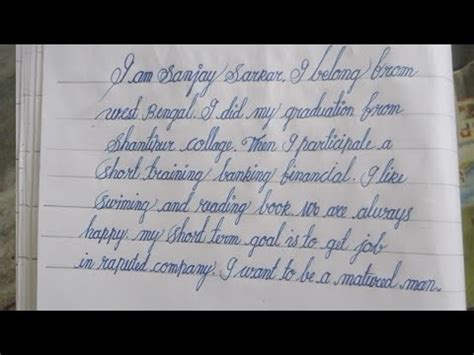 I am Sanjay Sarkar. I belong from
west Bengal. I did my graduation from
Shantipur collage. Then I participale a
short training banking financial. I like
swiming and reading book. We are always
happy. my short term goal is to get job
in raputed company. I want to be a matured man.